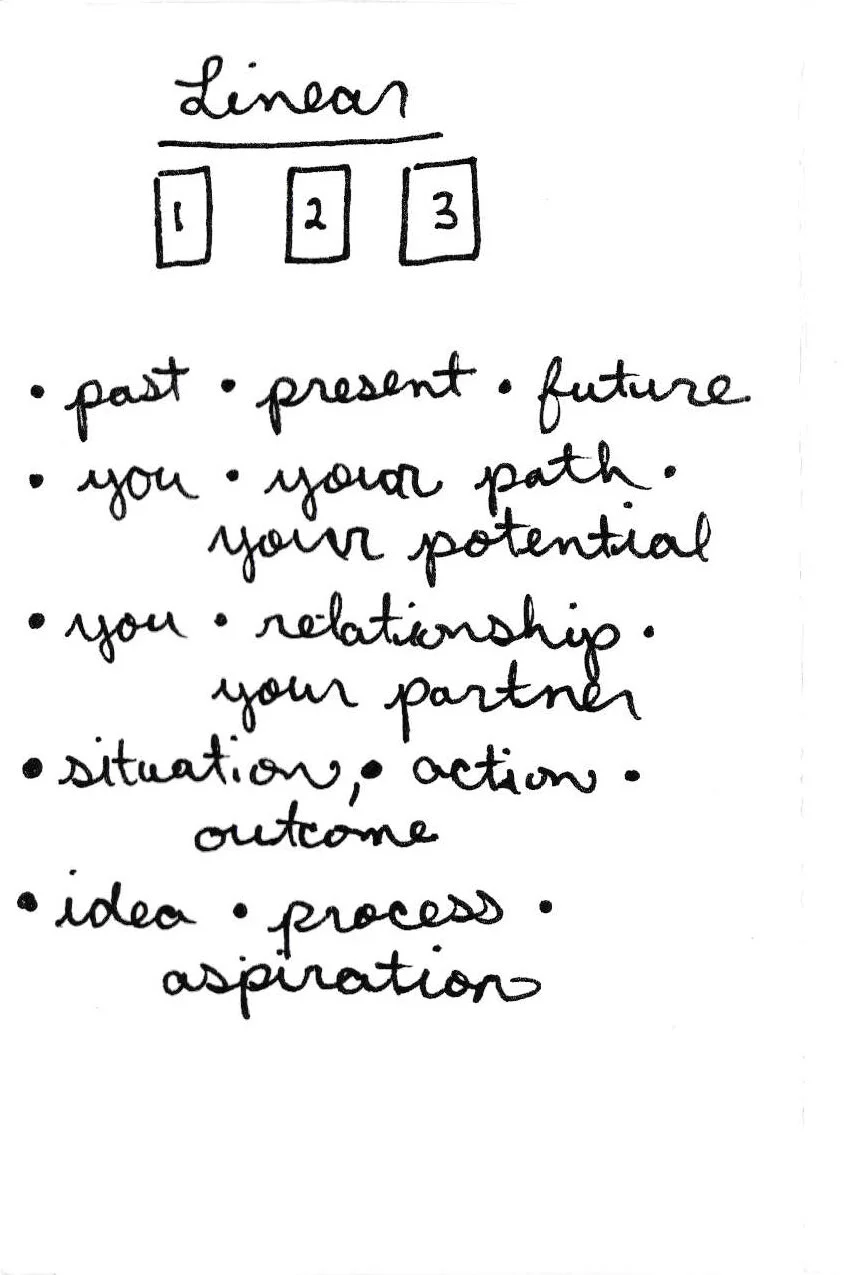 Linear
1 2 3
• past • present • future
• you • your path •
your potential
• you • relationship •
your partner
• situation, • action •
outcome
• idea • process •
aspiration